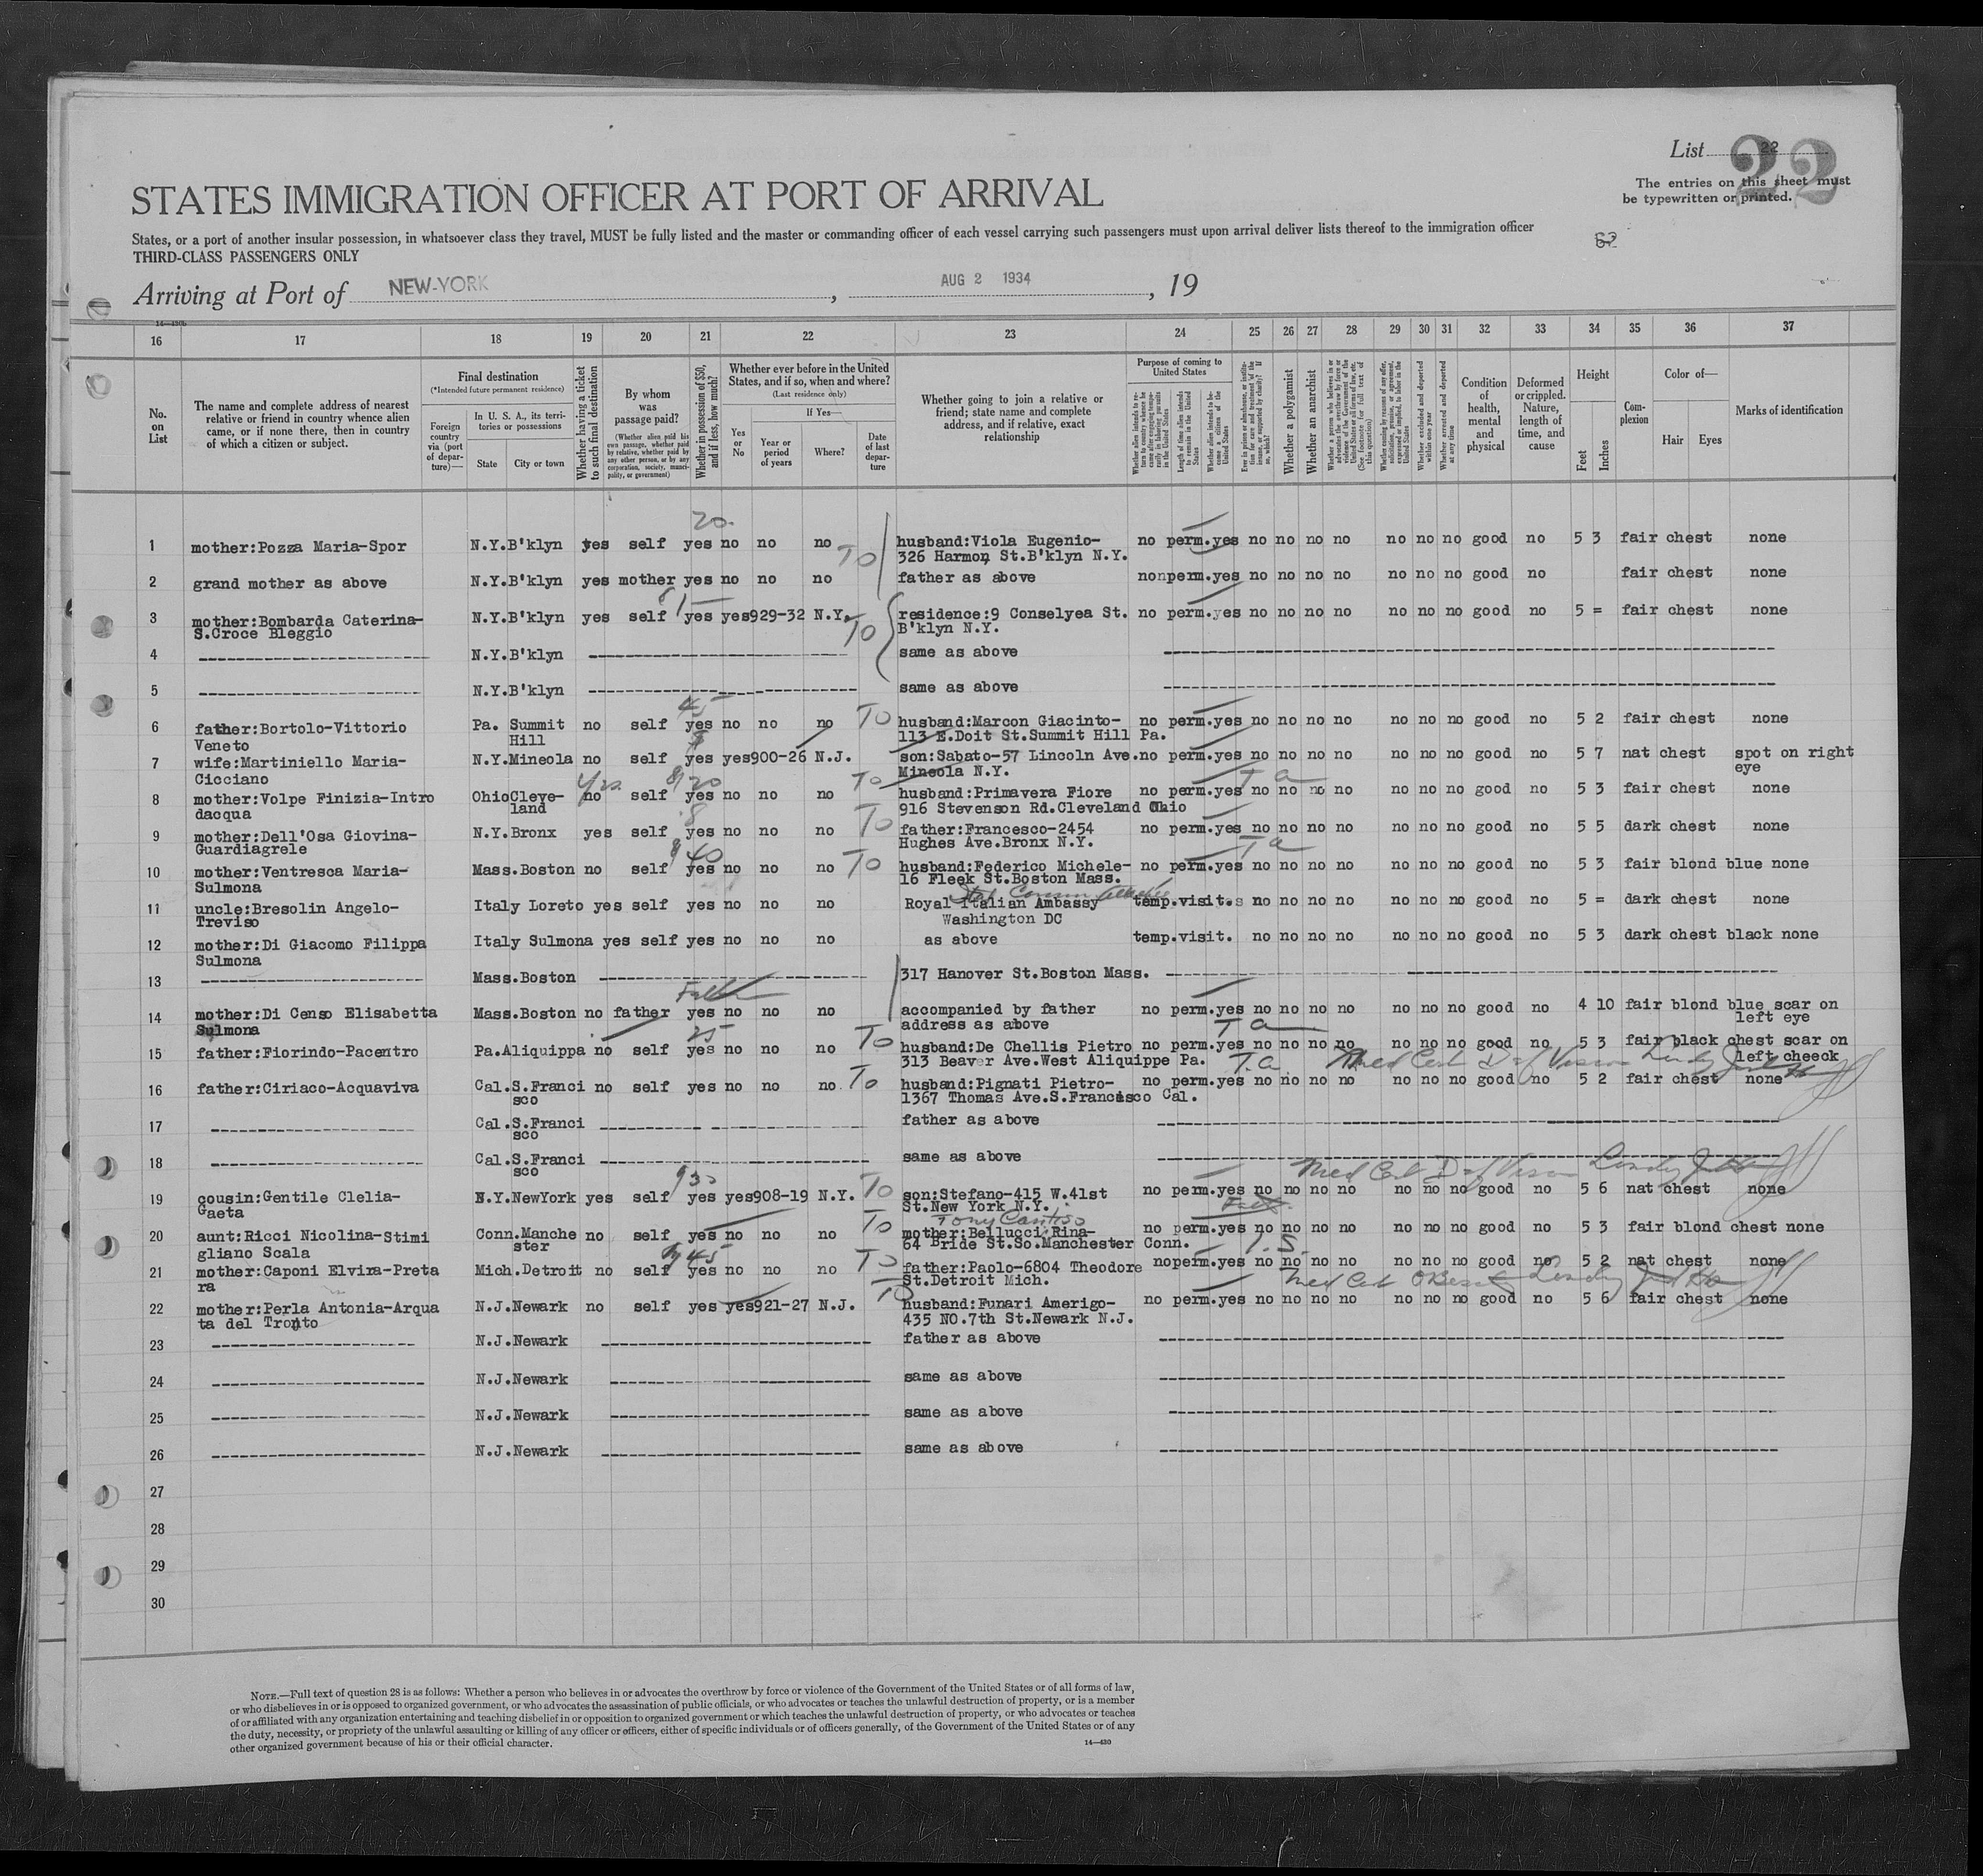 List 22
22
The entries on this sheet must
be typewritten or printed.
STATES IMMIGRATION OFFICER AT PORT OF ARRIVAL
States, or a port of another insular possession, in whatsoever class they travel, MUST be fully listed and the master or commanding officer of each vessel carrying such passengers must upon arrival deliver lists thereof to the immigration officer
THIRD-CLASS PASSENGERS ONLY
Arriving at Port of NEW-YORK, AUG 2 1934, 19
14—430b
16 17 18 19 20 21 22 23 24 25 26 27 28 29 30 31 32 33 34 35 36 37
No. on List
The name and complete address of nearest relative or friend in country whence alien came, or if none there, then in country of which a citizen or subject.
Final destination
(*Intended future permanent residence)
Foreign country via (port of departure)—
In U. S. A., its territories or possessions
State City or town
Whether having a ticket to such final destination
By whom was passage paid?
(Whether alien paid his own passage, whether paid by relative, whether paid by any other person, or by any corporation, society, municipality, or government)
Whether in possession of $50, and if less, how much?
Whether ever before in the United States, and if so, when and where?
(Last residence only)
If Yes—
Yes or No Year or period of years Where? Date of last departure
Whether going to join a relative or friend; state name and complete address, and if relative, exact relationship
Purpose of coming to United States
Whether a polygamist
Whether an anarchist
Condition of health, mental and physical
Deformed or crippled. Nature, length of time, and cause
Height
Feet Inches
Complexion
Color of—
Hair Eyes
Marks of identification
20
1 mother:Pozza Maria-Spor N.Y.B'klyn yes self yes no no no TO husband:Viola Eugenio- no perm.yes no no no no no no no good no 5 3 fair chest none
326 Harmon St.B'klyn N.Y.
2 grand mother as above N.Y.B'klyn yes mother yes no no no father as above nonperm.yes no no no no no no no good no fair chest none
3 mother:Bombarda Caterina- N.Y.B'klyn yes self yes yes929-32 N.Y. TO residence:9 Conselyea St. no perm.yes no no no no no no no good no 5 = fair chest none
S.Croce Bleggio B'klyn N.Y.
4 N.Y.B'klyn same as above
5 N.Y.B'klyn same as above
45
6 father:Bortolo-Vittorio Pa. Summit no self yes no no no TO husband:Marcon Giacinto- no perm.yes no no no no no no no good no 5 2 fair chest none
Veneto Hill 113 E.Doit St.Summit Hill Pa.
7 wife:Martiniello Maria- N.Y.Mineola no self yes yes900-26 N.J. son:Sabato-57 Lincoln Ave.no perm.yes no no no no no no no good no 5 7 nat chest spot on right
Cicciano To Mineola N.Y. eye
yes 20 T a
8 mother:Volpe Finizia-Intro OhioCleve- no self yes no no no husband:Primavera Fiore no perm.yes no no no no no no no good no 5 3 fair chest none
dacqua land 916 Stevenson Rd.Cleveland Ohio
8
9 mother:Dell'Osa Giovina- N.Y.Bronx yes self yes no no no TO father:Francesco-2454 no perm.yes no no no no no no no good no 5 5 dark chest none
Guardiagrele Hughes Ave.Bronx N.Y.
40 T a
10 mother:Ventresca Maria- Mass.Boston no self yes no no no TO husband:Federico Michele- no perm.yes no no no no no no no good no 5 3 fair blond blue none
Sulmona 16 Fleek St.Boston Mass.
11 uncle:Bresolin Angelo- Italy Loreto yes self yes no no no Royal Italian Ambassy temp.visit.s no no no no no no no good no 5 = dark chest none
Treviso Washington DC
12 mother:Di Giacomo Filippa Italy Sulmona yes self yes no no no as above temp.visit. no no no no no no no good no 5 3 dark chest black none
Sulmona
13 Mass.Boston 317 Hanover St.Boston Mass.
Father
14 mother:Di Censo Elisabetta Mass.Boston no father yes no no no accompanied by father no perm.yes no no no no no no no good no 4 10 fair blond blue scar on
Sulmona address as above left eye
25 T a
15 father:Fiorindo-Pacentro Pa.Aliquippa no self yes no no no To husband:De Chellis Pietro no perm.yes no no no no no no no good no 5 3 fair black chest scar on
313 Beaver Ave.West Aliquippe Pa. left cheeck
T.a. Med Cert D of Vision
16 father:Ciriaco-Acquaviva Cal.S.Franci no self yes no no no To husband:Pignati Pietro- no perm.yes no no no no no no no good no 5 2 fair chest none
sco 1367 Thomas Ave.S.Francisco Cal.
17 Cal.S.Franci father as above
sco
18 Cal.S.Franci same as above
sco
Med Cert D of Vision
19 cousin:Gentile Clelia- N.Y.NewYork yes self yes yes908-19 N.Y. TO son:Stefano-415 W.41st no perm.yes no no no no no no no good no 5 6 nat chest none
Gaeta St.New York N.Y.
Tony
20 aunt:Ricci Nicolina-Stimi Conn.Manche no self yes no no no TO mother:Bellucci Rina- no perm.yes no no no no no no no good no 5 3 fair blond chest none
gliano Scala ster 64 Bride St.So.Manchester Conn.
45 I.S.
21 mother:Caponi Elvira-Preta Mich.Detroit no self yes no no no TO father:Paolo-6804 Theodore noperm.yes no no no no no no no good no 5 2 nat chest none
ra St.Detroit Mich.
Med Cert Obesity
22 mother:Perla Antonia-Arqua N.J.Newark no self yes yes921-27 N.J. TO husband:Funari Amerigo- no perm.yes no no no no no no no good no 5 6 fair chest none
ta del Tronto 435 NO.7th St.Newark N.J.
23 N.J.Newark father as above
24 N.J.Newark same as above
25 N.J.Newark same as above
26 N.J.Newark same as above
27
28
29
30
NOTE.—Full text of question 28 is as follows: Whether a person who believes in or advocates the overthrow by force or violence of the Government of the United States or of all forms of law,
or who disbelieves in or is opposed to organized government, or who advocates the assassination of public officials, or who advocates or teaches the unlawful destruction of property, or is a member
of or affiliated with any organization entertaining and teaching disbelief in or opposition to organized government or which teaches the unlawful destruction of property, or who advocates or teaches
the duty, necessity, or propriety of the unlawful assaulting or killing of any officer or officers, either of specific individuals or of officers generally, of the Government of the United States or of any
other organized government because of his or their official character.
14—430